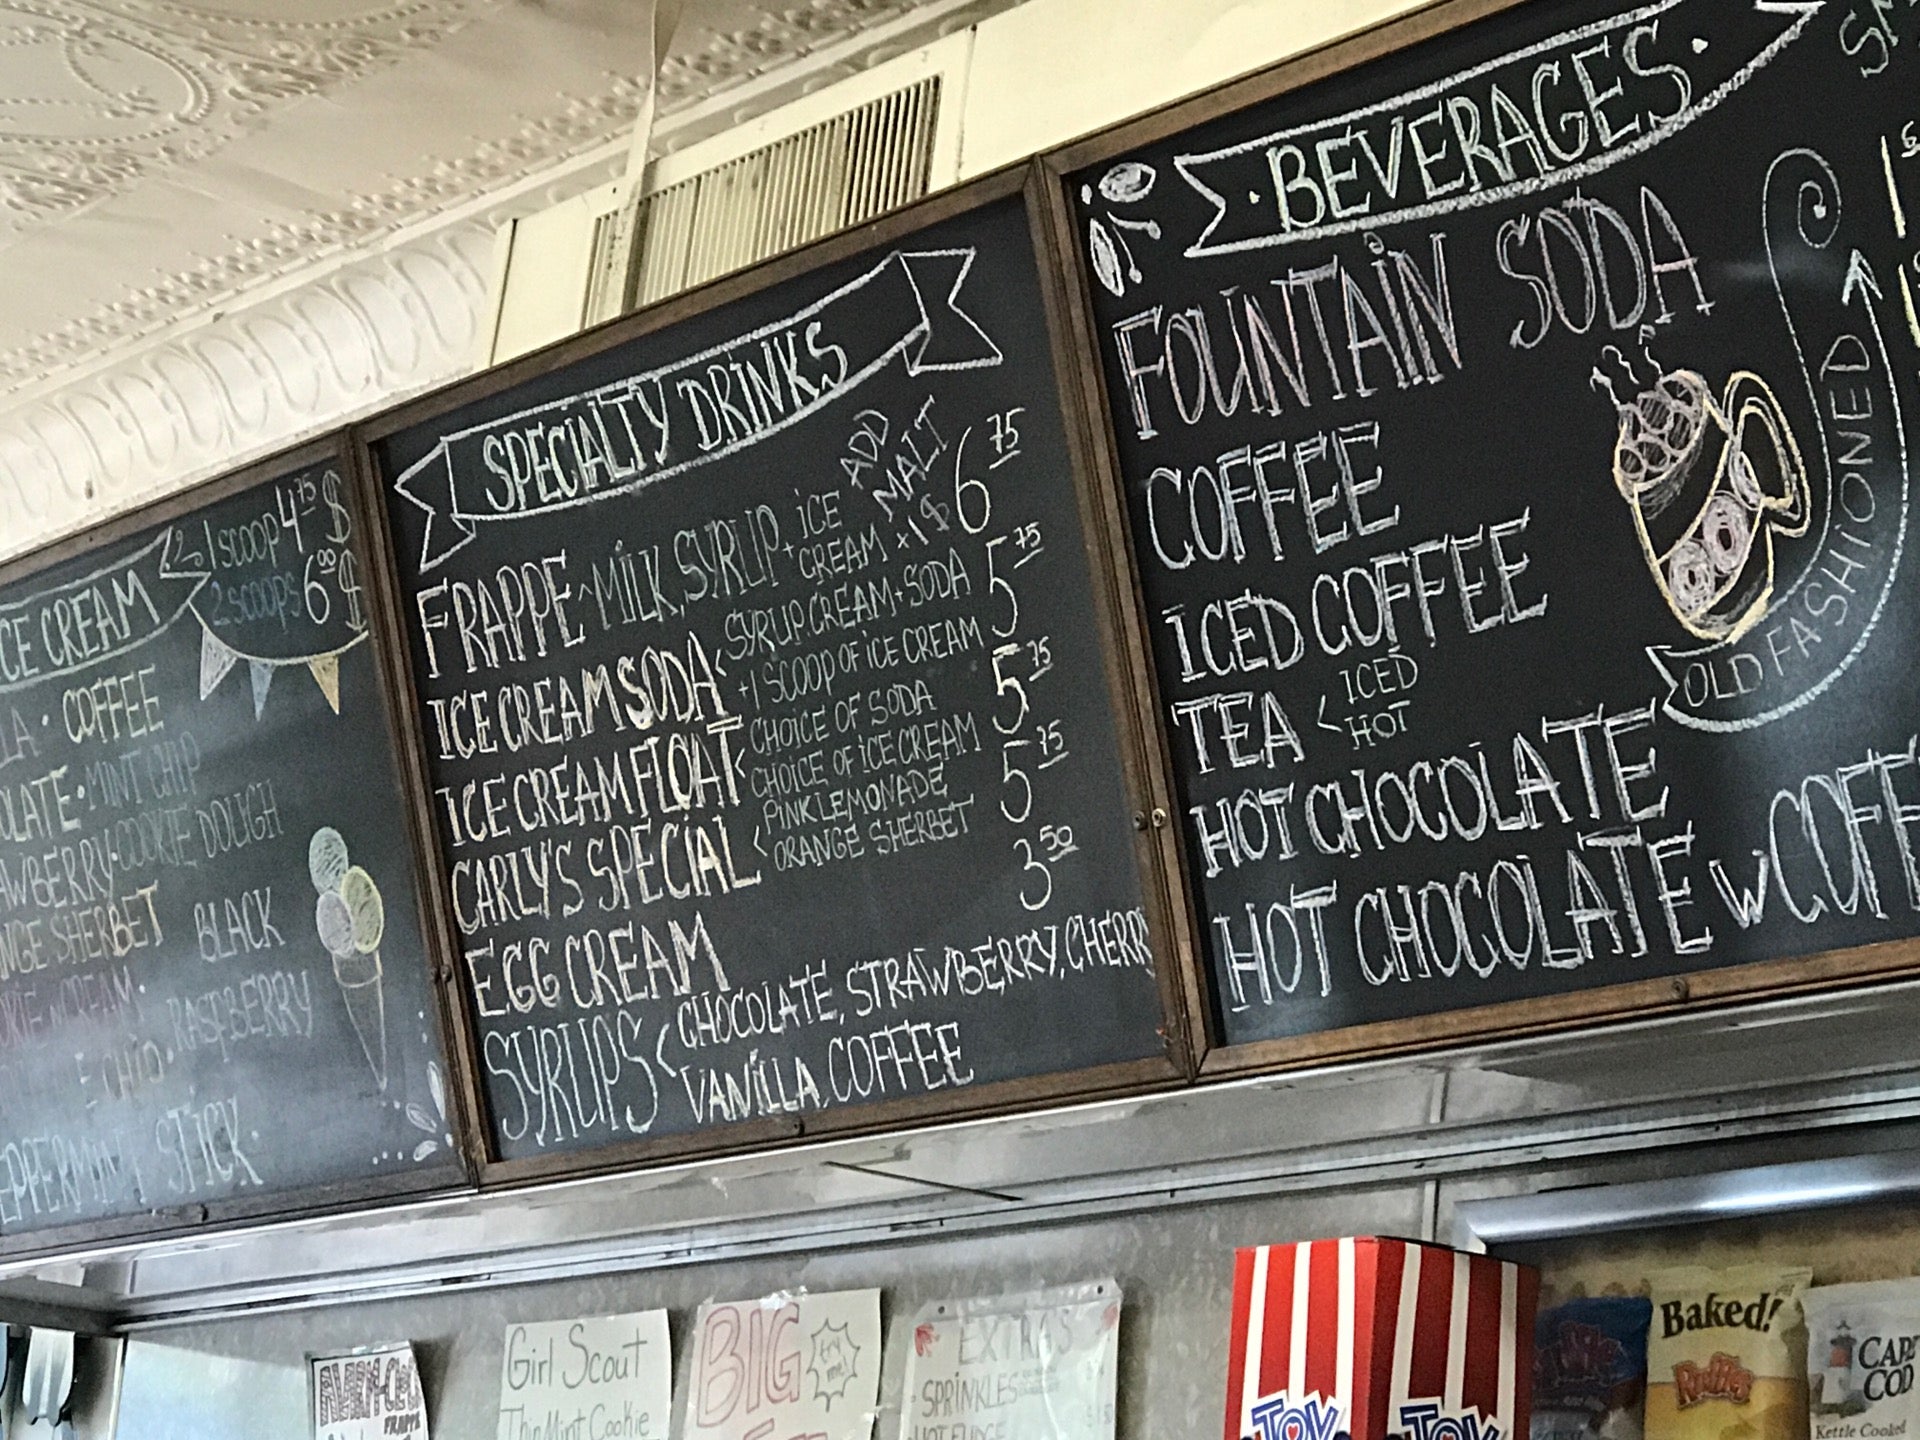 CE CREAM
1 SCOOP 4 75 $
2 SCOOPS 6 00 $
LA · COFFEE
OLATE · MINT CHIP
AWBERRY · COOKIE DOUGH
NGE SHERBET
BLACK
RASPBERRY
CREAM ·
STICK
SPECIALTY DRINKS
ADD MALT x 1$
FRAPPE ~ MILK, SYRUP + ICE CREAM 6 75
ICE CREAM SODA < SYRUP, CREAM + SODA 5 75
+ 1 SCOOP OF ICE CREAM
ICE CREAM FLOAT < CHOICE OF SODA 5 75
CHOICE OF ICE CREAM
CARLY'S SPECIAL < PINK LEMONADE 5 75
ORANGE SHERBET
EGG CREAM 3 50
SYRUPS < CHOCOLATE, STRAWBERRY, CHERRY
VANILLA, COFFEE
· BEVERAGES ·
FOUNTAIN SODA
COFFEE
ICED COFFEE
TEA < ICED
HOT
HOT CHOCOLATE
HOT CHOCOLATE W COFFE
OLD FASHIONED
Girl Scout
Thin Mint Cookie
BIG
try me!
EXTRAS
SPRINKLES
HOT FUDGE
JOY
JOY
Baked!
Ruffles
CAPE
COD
Kettle Cooked